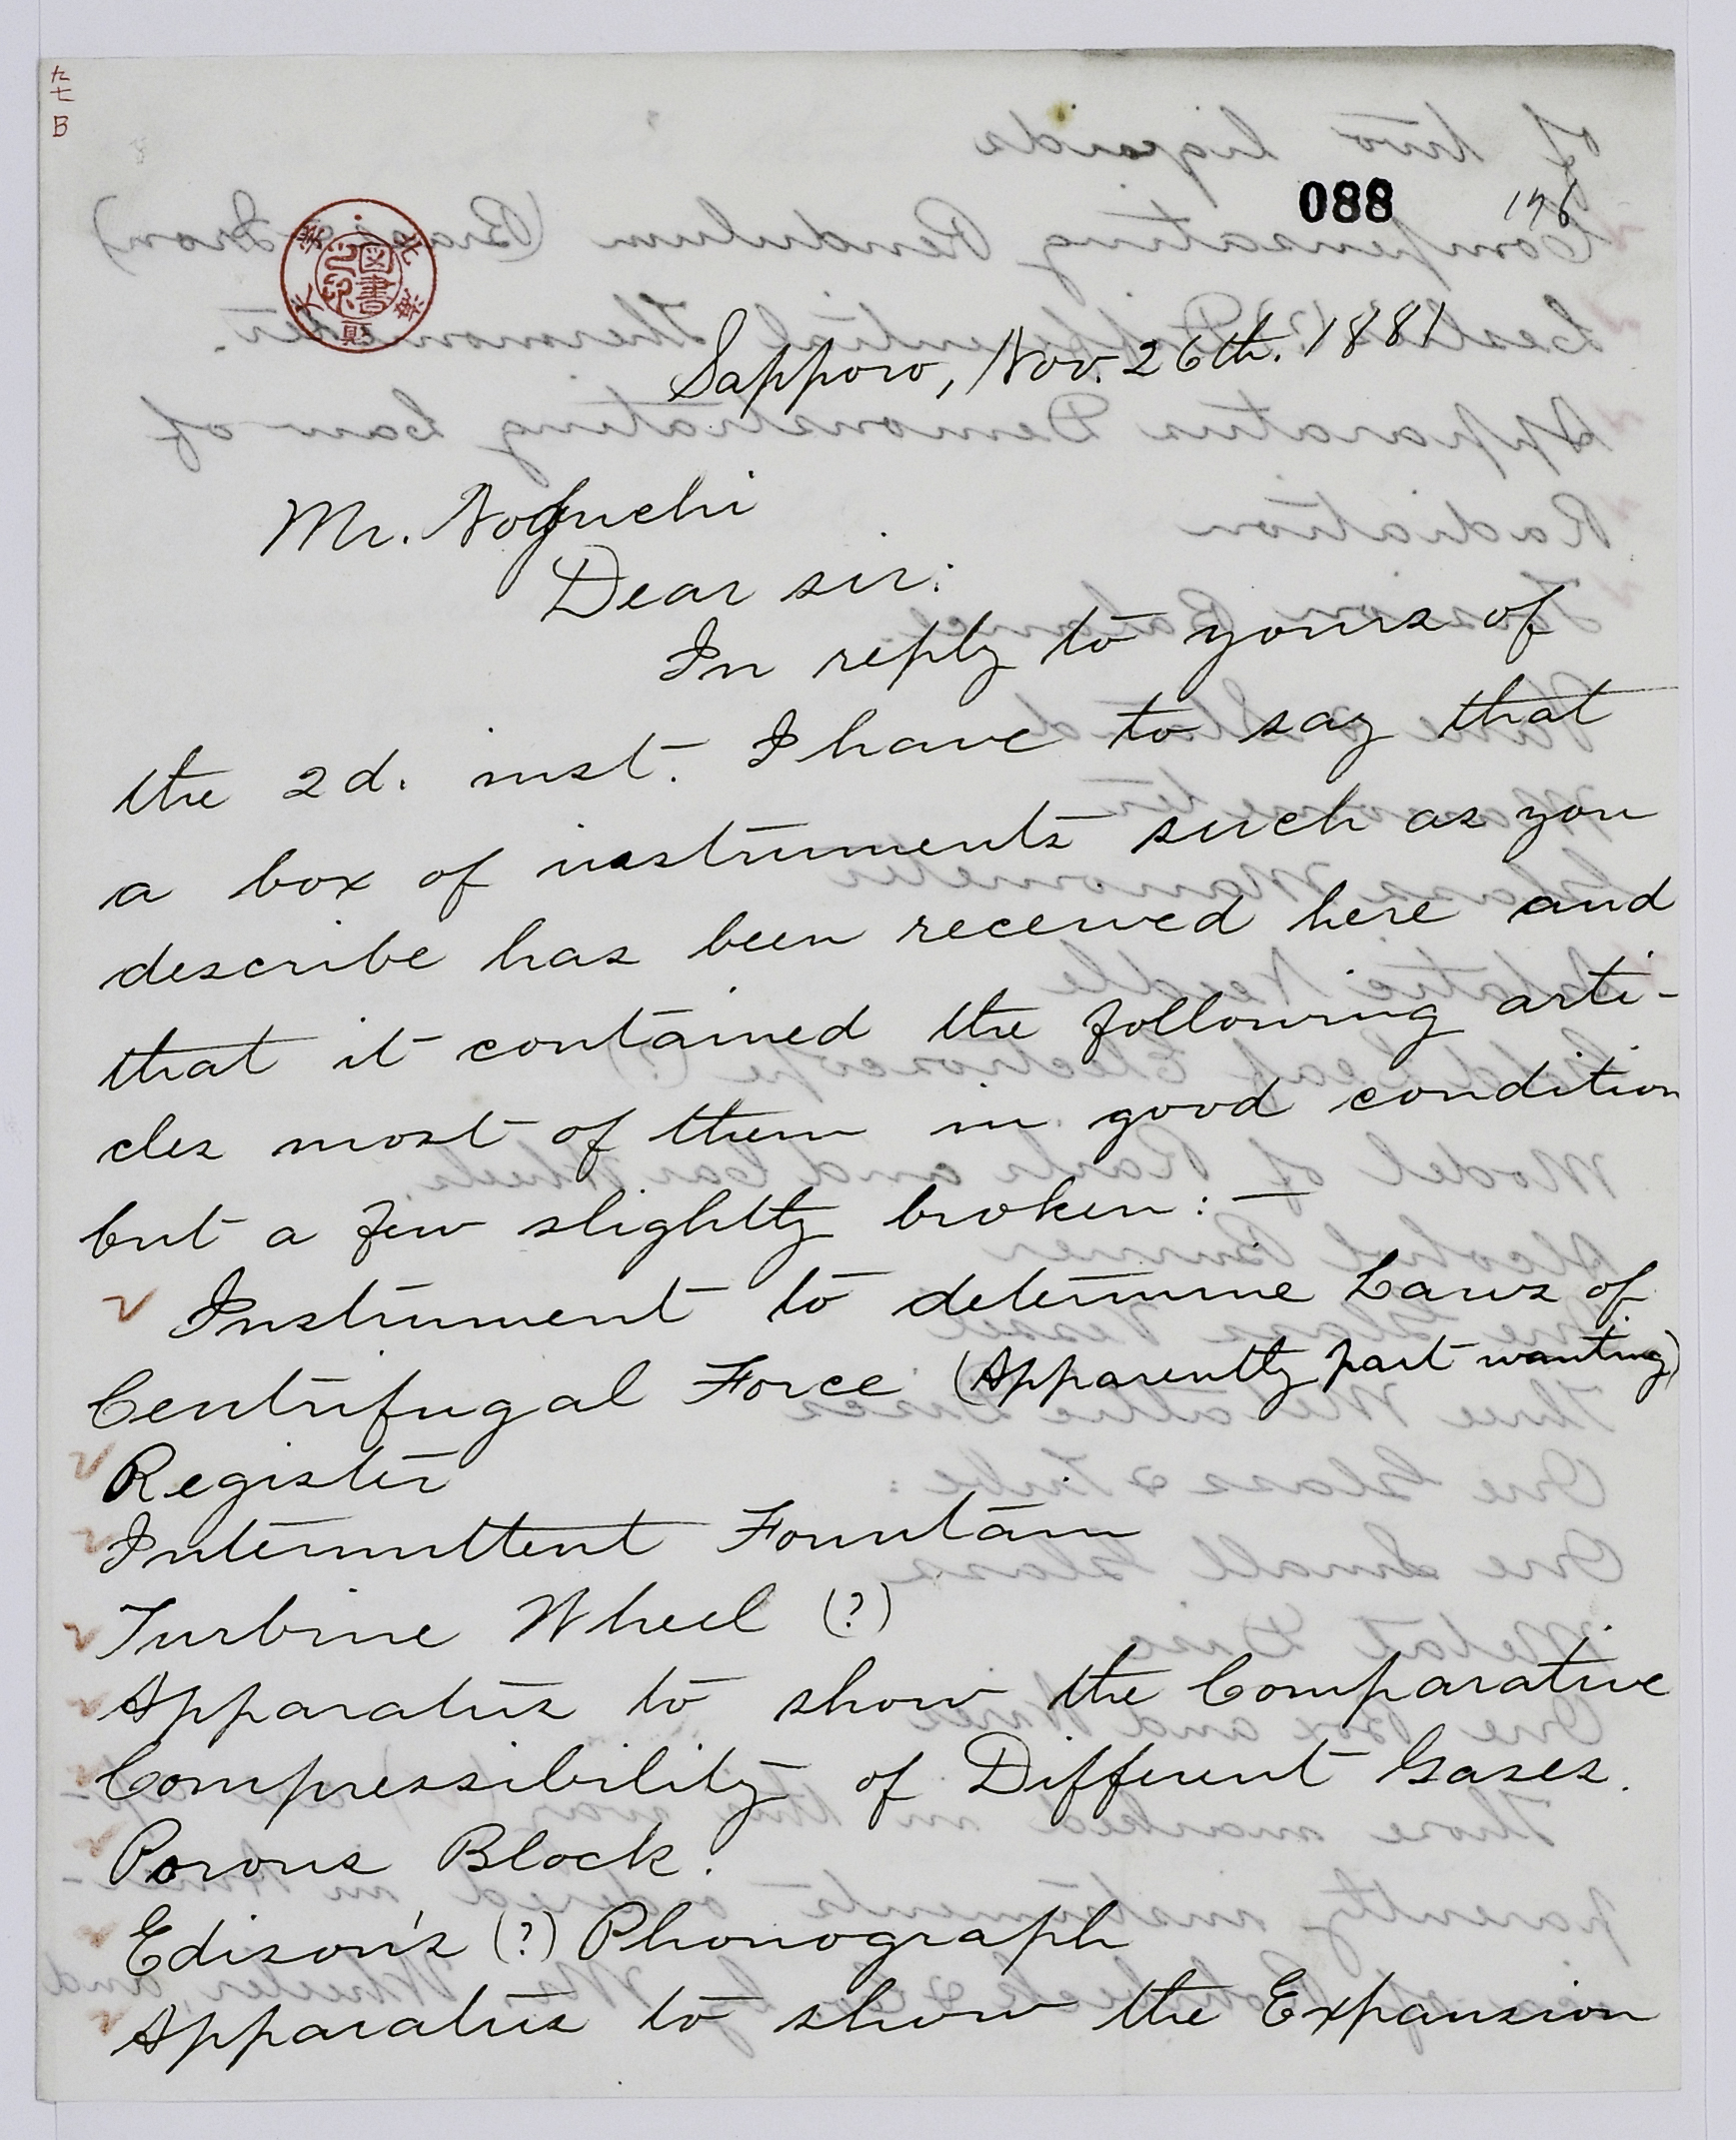 九七
B
088
176
Sapporo, Nov. 26th. 1881
Mr. Noguchi
Dear sir:
In reply to yours of
the 2d. inst. I have to say that
a box of instruments such as you
describe has been received here and
that it contained the following arti-
cles most of them in good condition
but a few slightly broken: —
Instrument to determine Laws of
Centrifugal Force (Apparently part wanting)
Register
Intermittent Fountain
Turbine Wheel (?)
Apparatus to show the Comparative
Compressibility of Different Gases.
Porous Block.
Edison's (?) Phonograph
Apparatus to show the Expansion